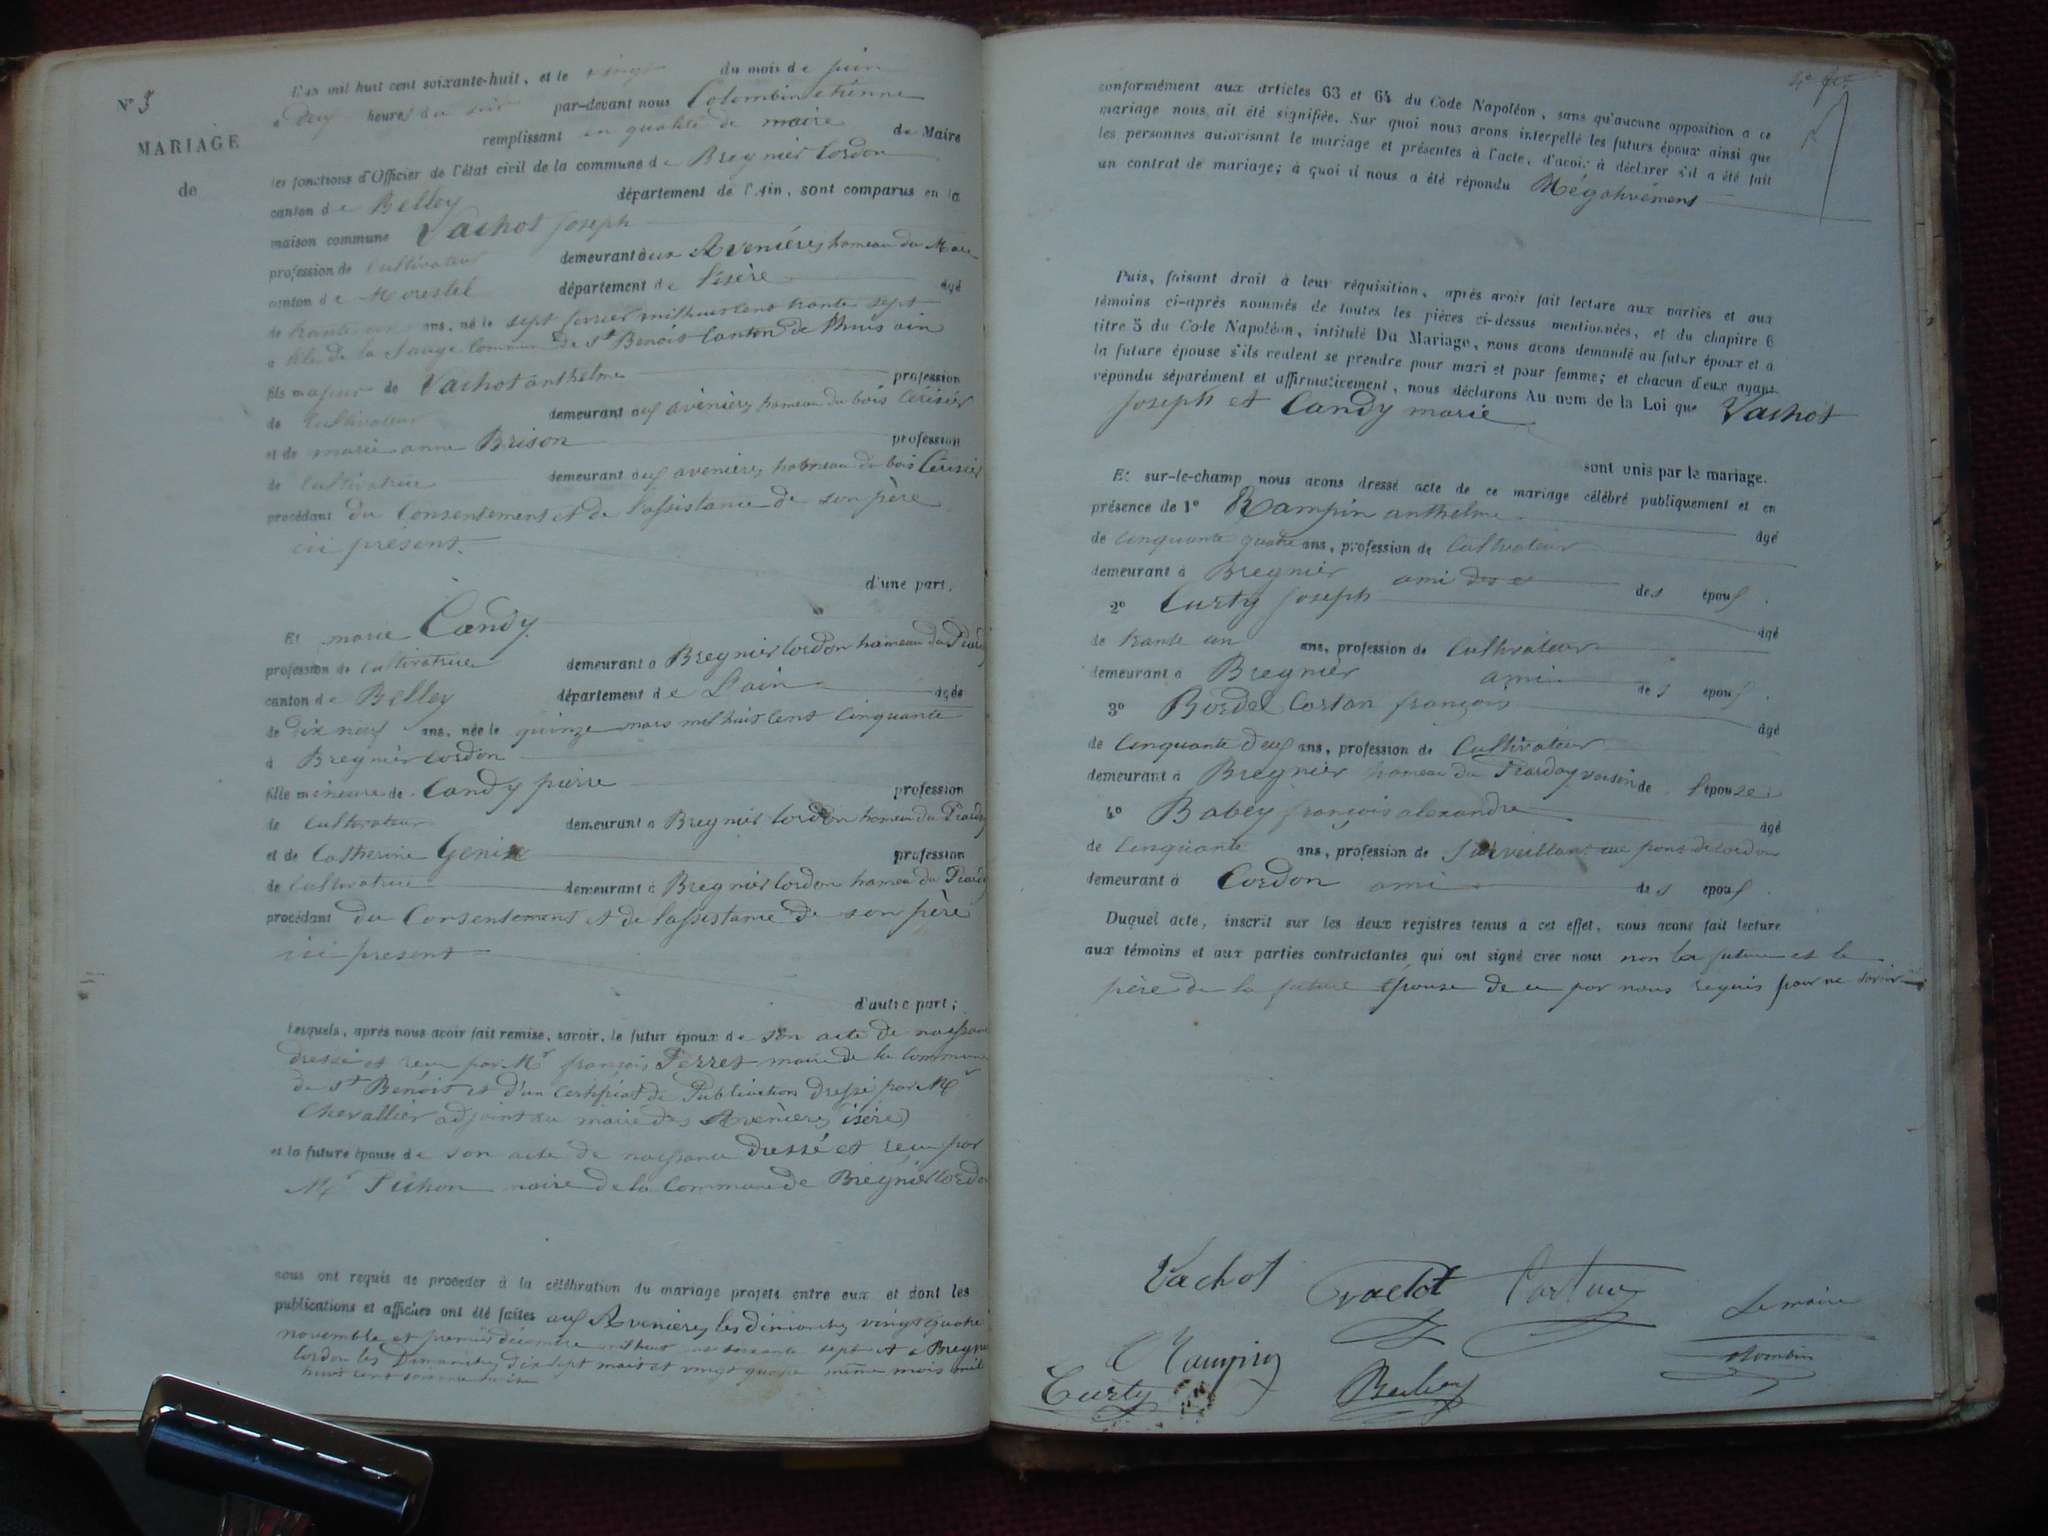 N° 3
MARIAGE
de
L'an mil huit cent soixante-huit, et le vingt du mois de juin
à deux heures du soir par-devant nous Colombin etienne
remplissant en qualité de maire de Maire
les fonctions d'Officier de l'état civil de la commune de Bregnier Cordon
canton de Belley département de l'Ain, sont comparus en la
maison commune Vachot joseph
profession de Cultivateur demeurant aux Avenières hameau du
canton de Morestel département de l'isère âgé
de trante un ans, né le sept fevrier mil huit cent trante sept
à de la Sauge Commune de St Benoit Canton de
fils majeur de Vachot anthelme profession
de Cultivateur demeurant aux avenières hameau du bois Cérisier
et de marie anne Brison profession
de Cultivatrice demeurant aux avenières hameau du bois Cérisier
procédant du Consentement et de l'assistance de son père
ici present.
d'une part.
Et marie Candy
profession de Cultivatrice demeurant à Bregnier Cordon hameau du
canton de Belley département de L'ain âgée
de dix neuf ans, née le quinze mars mil huit cent Cinquante
à Bregnier Cordon
fille mineure de Candy pierre profession
de Cultivateur demeurant à Bregnier Cordon hameau du
et de Catherine profession
de Cultivatrice demeurant à Bregnier Cordon hameau du
procédant du Consentement et de l'assistance de son père
ici present
d'autre part;
Lesquels, après nous avoir fait remise, savoir, le futur époux de son acte de naissance
dressé et recu par Mr françois Perret maire de la Commune
de St Benoit et d'un certificat de Publication dressé par Mr
Chevallier adjoint au maire des Avenières isère)
et la future épouse de son acte de naissance dressé et recu par
Mr Pichon maire de la Commune de Brégnier Cordon
nous ont requis de proceder à la célébration du mariage projeté entre eux et dont les
publications et affiches ont été faites aux Avenières les dimanches vingt quatre
novembre et premier décembre mil huit cent soixante sept et à Bregnier
Cordon les Dimanches dix sept mars et vingt quatre même mois mil
huit cent soixante huit
conformément aux articles 63 et 64 du Code Napoléon, sans qu'aucune opposition à ce
mariage nous ait été signifiée. Sur quoi nous avons interpellé les futurs époux ainsi que
les personnes autorisant le mariage et présentes à l'acte, d'avoir à déclarer s'il a été fait
un contrat de mariage; à quoi il nous a été répondu Négativement
Puis, faisant droit à leur réquisition, après avoir fait lecture aux parties et aux
témoins ci-après nommés de toutes les pièces ci-dessus mentionnées, et du chapitre 6
titre 5 du Code Napoléon, intitulé Du Mariage, nous avons demandé au futur époux et à
la future épouse s'ils veulent se prendre pour mari et pour femme; et chacun d'eux ayant
répondu séparément et affirmativement, nous déclarons Au nom de la Loi que Vachot
Joseph et Candy marie
sont unis par le mariage.
Et sur-le-champ nous avons dressé acte de ce mariage célébré publiquement et en
présence de 1° Rampin anthelme âgé
de Cinquante quatre ans, profession de Cultivateur
demeurant à Bregnier ami des époux.
2° Curty Joseph âgé
de trante un ans, profession de Cultivateur
demeurant à Bregnier ami des époux.
3° Bordel Cortan françois âgé
de Cinquante deux ans, profession de Cultivateur
demeurant à Bregnier hameau du voisin de l'épouse
4° Babey françois alexandre âgé
de Cinquante ans, profession de Surveillant au pont de Cordon
demeurant à Cordon ami des époux.
Duquel acte, inscrit sur les deux registres tenus à cet effet, nous avons fait lecture
aux témoins et aux parties contractantes qui ont signé avec nous non la future et le
père de la future épouse de ce par nous requis pour ne savoir
Vachot Vachot Cortan Le maire
Rampin Colombin
Curty Babey